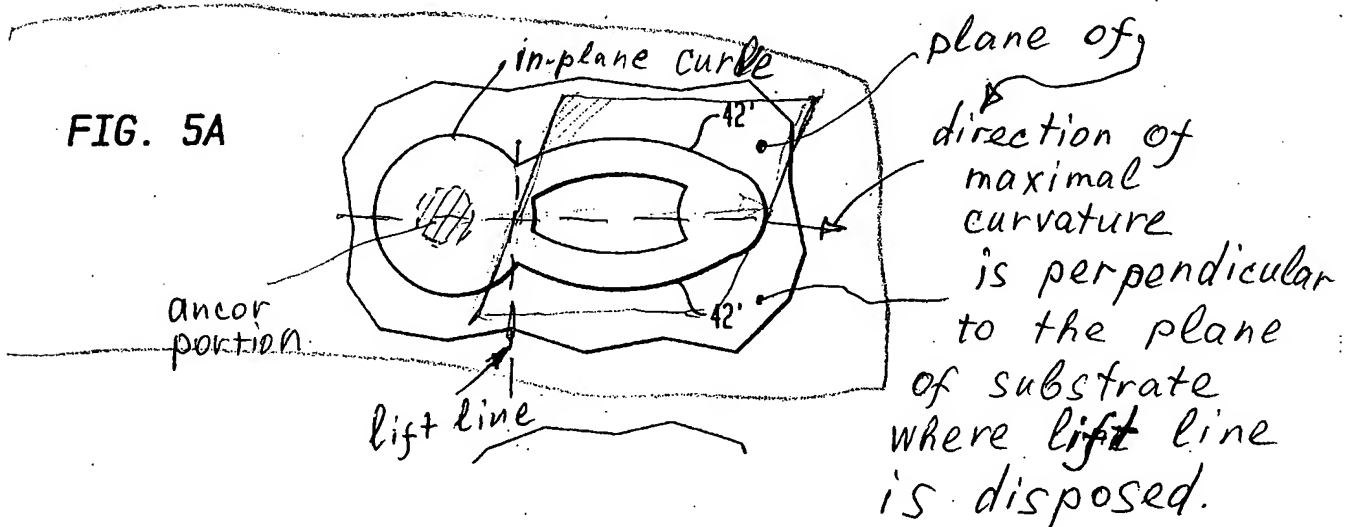 FIG. 5A
in-plane curve
42'
42'
ancor
portion.
lift line
plane of
direction of
maximal
curvature
is perpendicular
to the plane
of substrate
where lift line
is disposed.